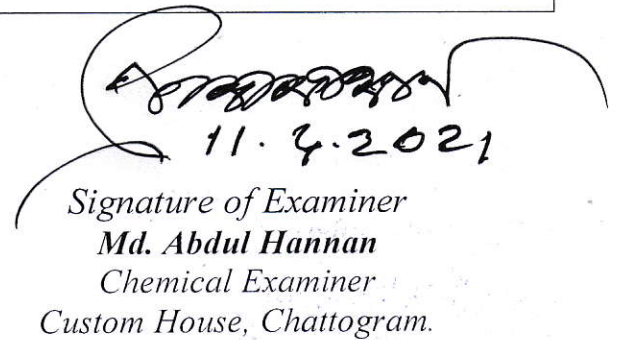 11. 4. 2021
Signature of Examiner
Md. Abdul Hannan
Chemical Examiner
Custom House, Chattogram.